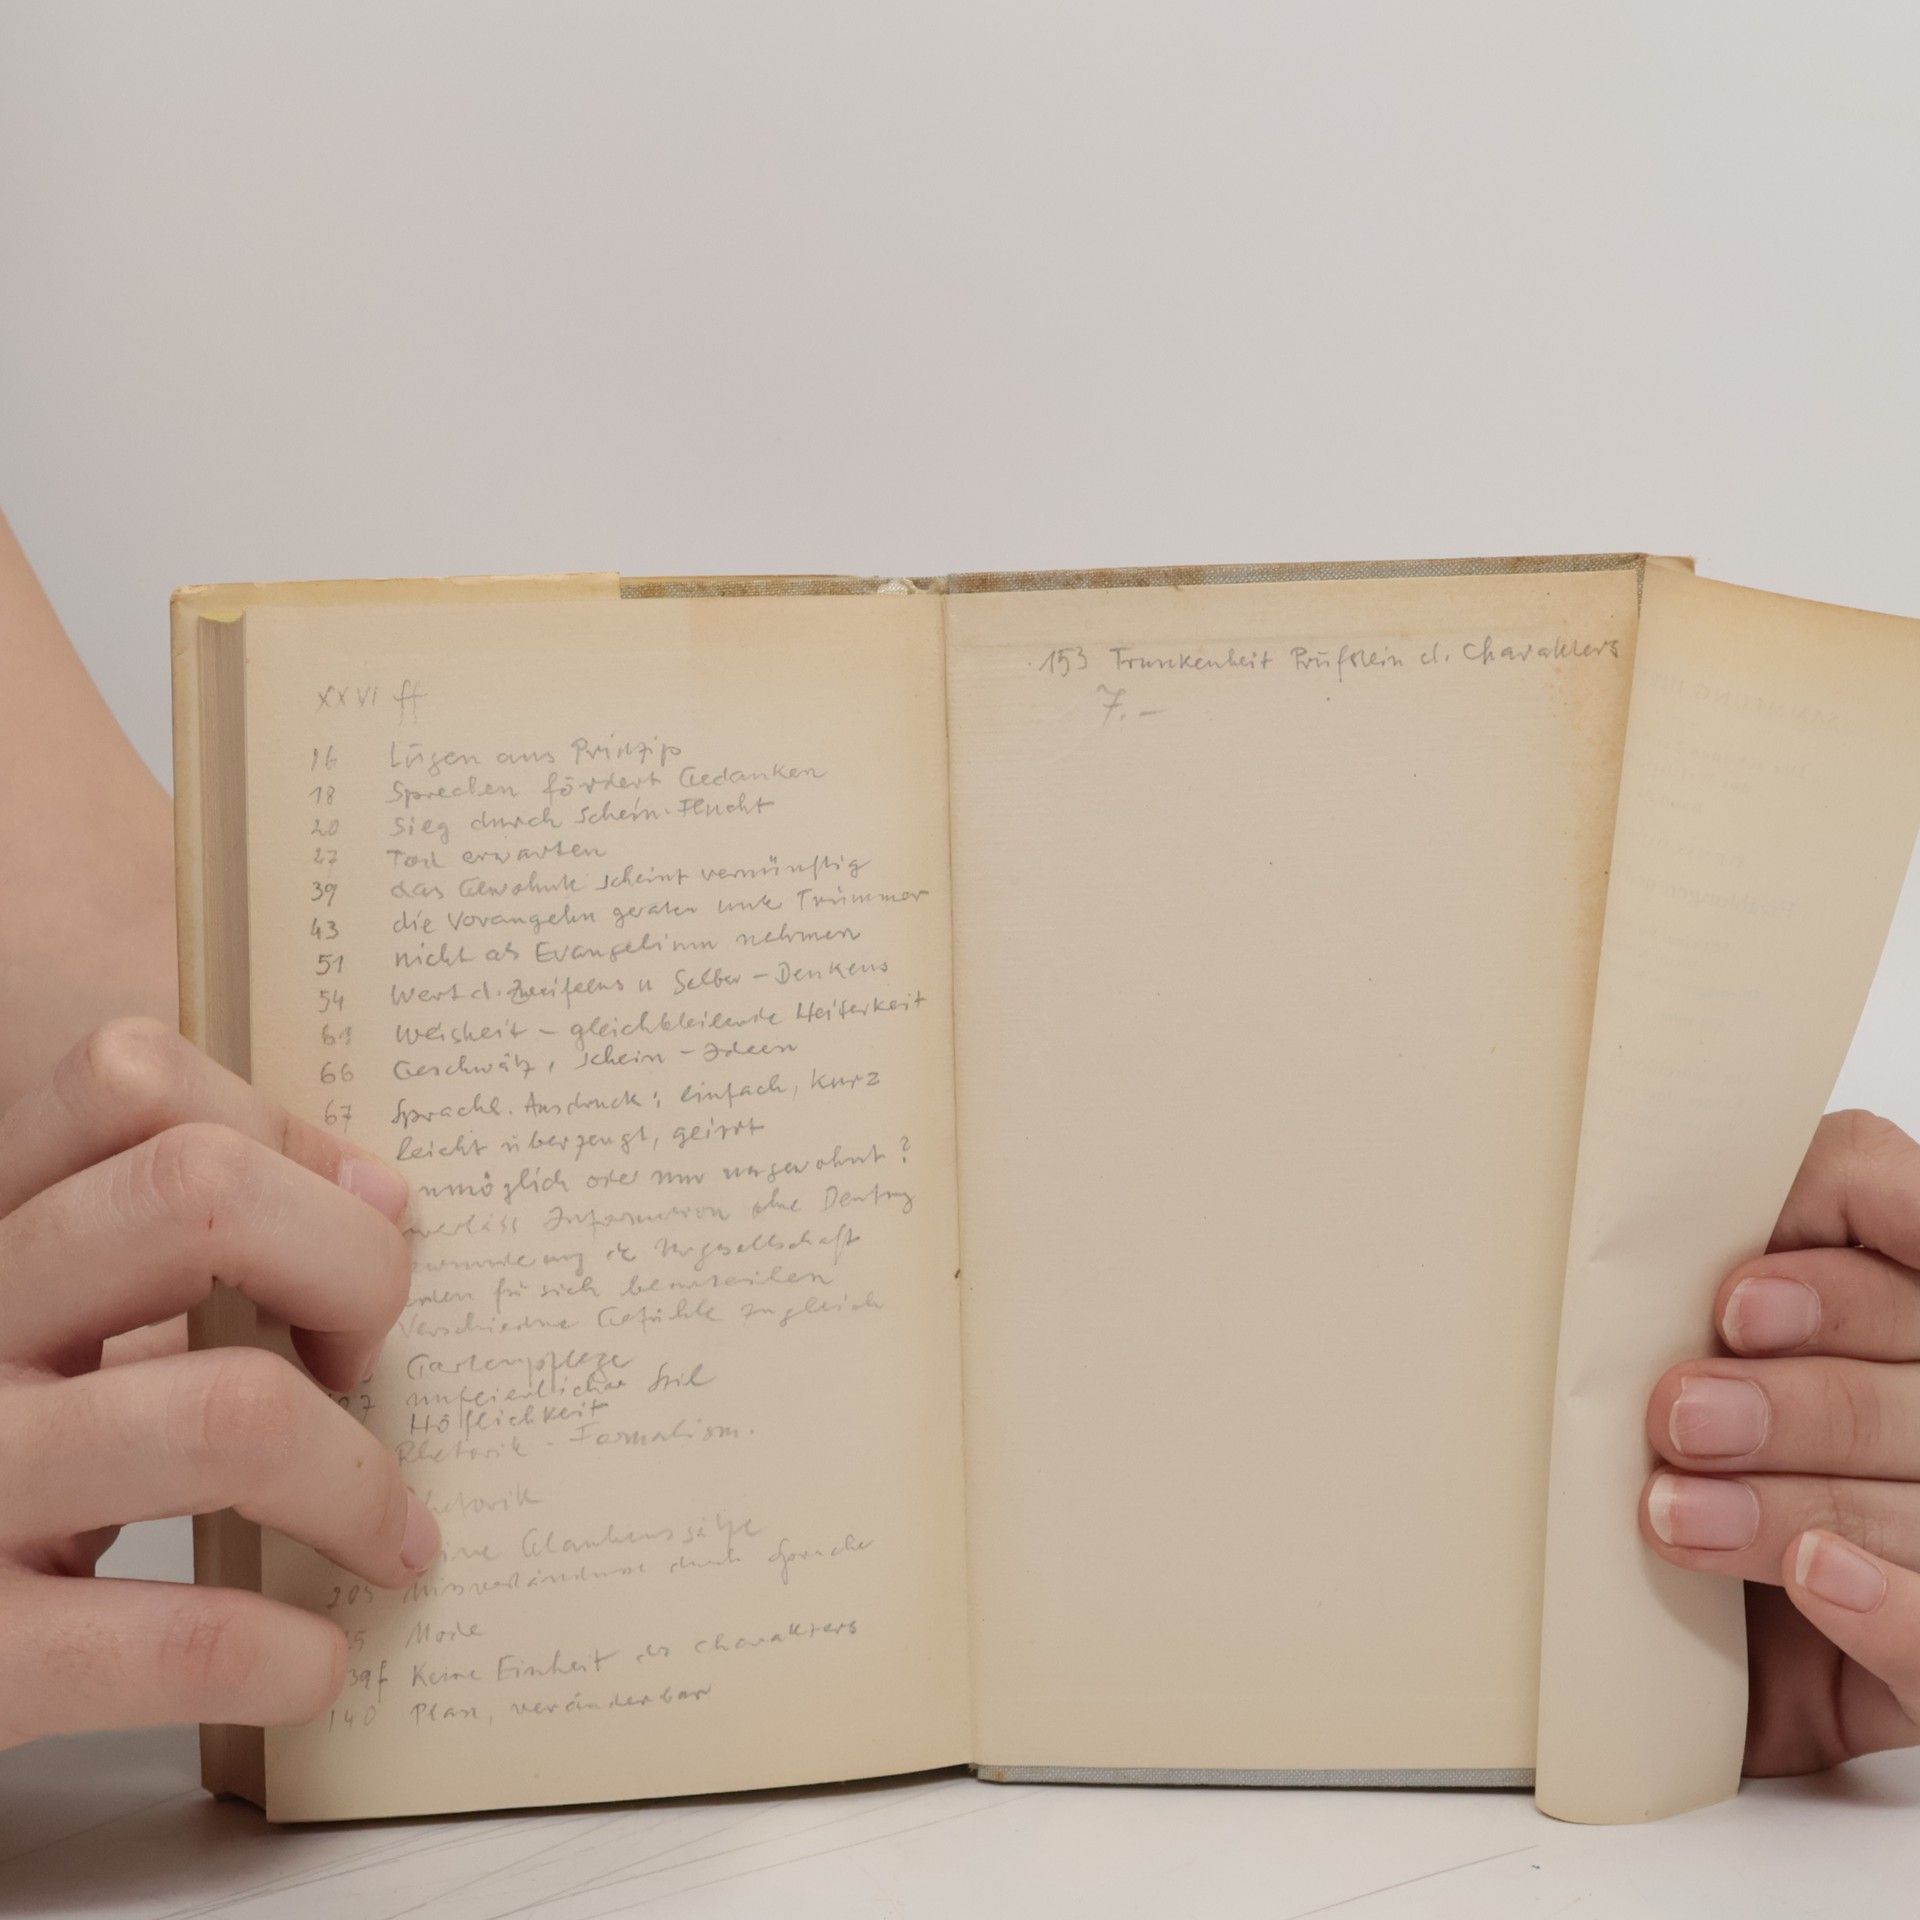 XXVI ff
16 Lügen aus Prinzip
18 Sprechen fördert Gedanken
20 Sieg durch Schein-Flucht
27 Tod erwarten
39 das Gewohnte scheint vernünftig
43 die Vorangehn geraten unter Trümmer
51 nicht als Evangelium nehmen
54 Wert d. Zweifelns u Selber-Denkens
61 Weisheit – gleichbleibende Heiterkeit
66 Geschwätz, Schein-Ideen
67 Sprachl. Ausdruck: einfach, kurz
leicht überzeugt, geirrt
unmöglich oder nur ungewohnt?
Information ohne Deutung
Urgesellschaft
für sich beurteilen
Verschiedne Gefühle zugleich
Gartenpflege
unfeierlicher Stil
Höflichkeit
Rhetorik - Formalism.
Rhetorik
Glaubenssätze
203 Missverständnisse durch Sprache
Mode
39f Keine Einheit des Charakters
140 Plan, veränderbar
153 Trunkenheit Prüfstein d. Charakters
7.-